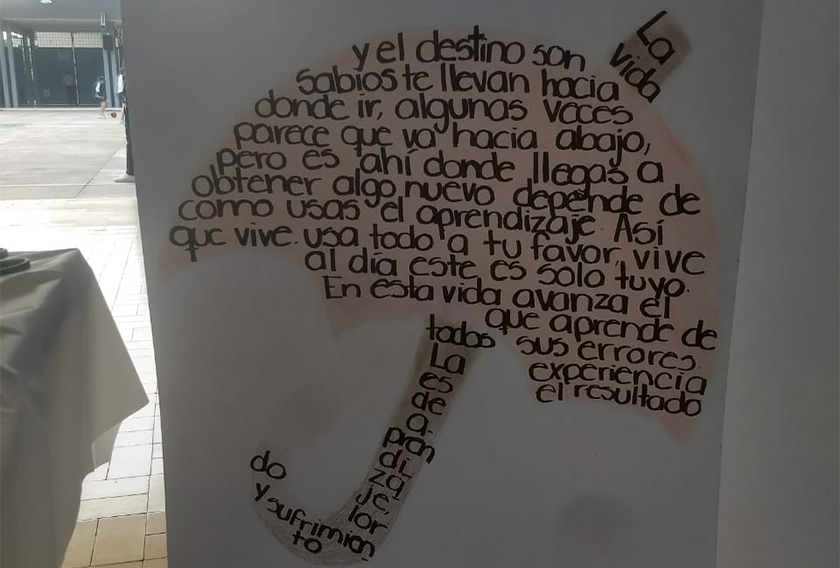 La
vida
y el destino son
sabios te llevan hacia
donde ir, algunas veces
parece que va hacia abajo,
pero es ahí donde llegas a
obtener algo nuevo depende de
como usas el aprendizaje. Así
que vive. usa todo a tu favor, vive
al día este es solo tuyo.
En esta vida avanza el
que aprende de
todos sus errores.
La experiencia
es el resultado
de
a-
pren
di
za
je,
do lor
y sufrimien
to